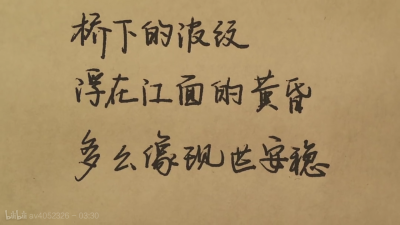 桥下的波纹
浮在江面的黄昏
多么像现世安稳
bilibili av4052326 - 03:30